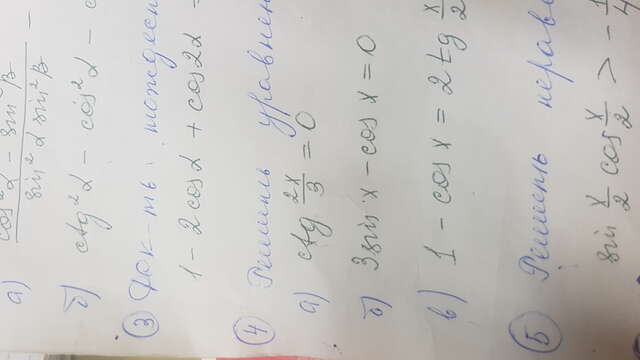 а) cos²α - sin²β / sin²α sin²β -
б) ctg²α - cos²α - c
③ Док-ть тождест
1 - 2cosα + cos2α =
④ Решить уравнен
а) ctg 2x/3 = 0
б) 3sin x - cos x = 0
в) 1 - cos x = 2tg x/2
⑤ Решить нераве
sin x/2 cos x/2 > - 1/4